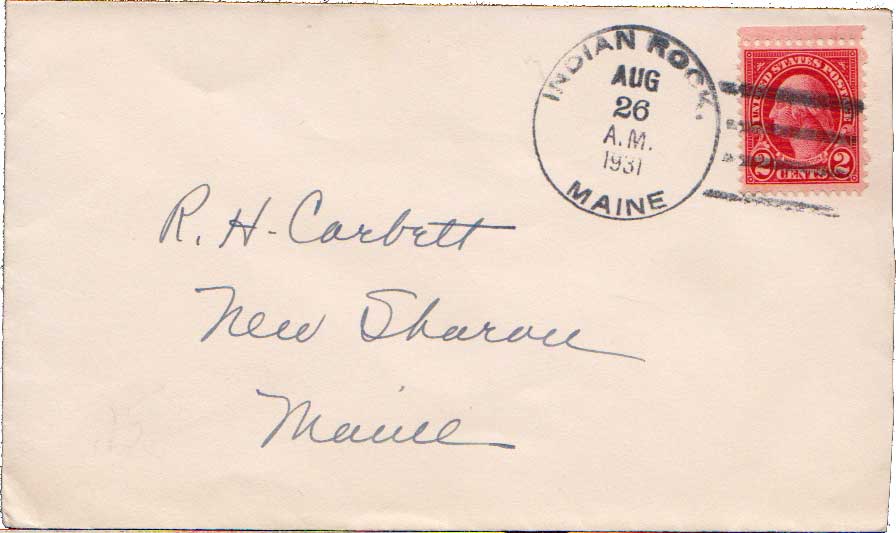 INDIAN ROCK.
AUG
26
A.M.
1931
MAINE
UNITED STATES POSTAGE
2 CENTS 2
R. H. Corbett
New Sharon
Maine